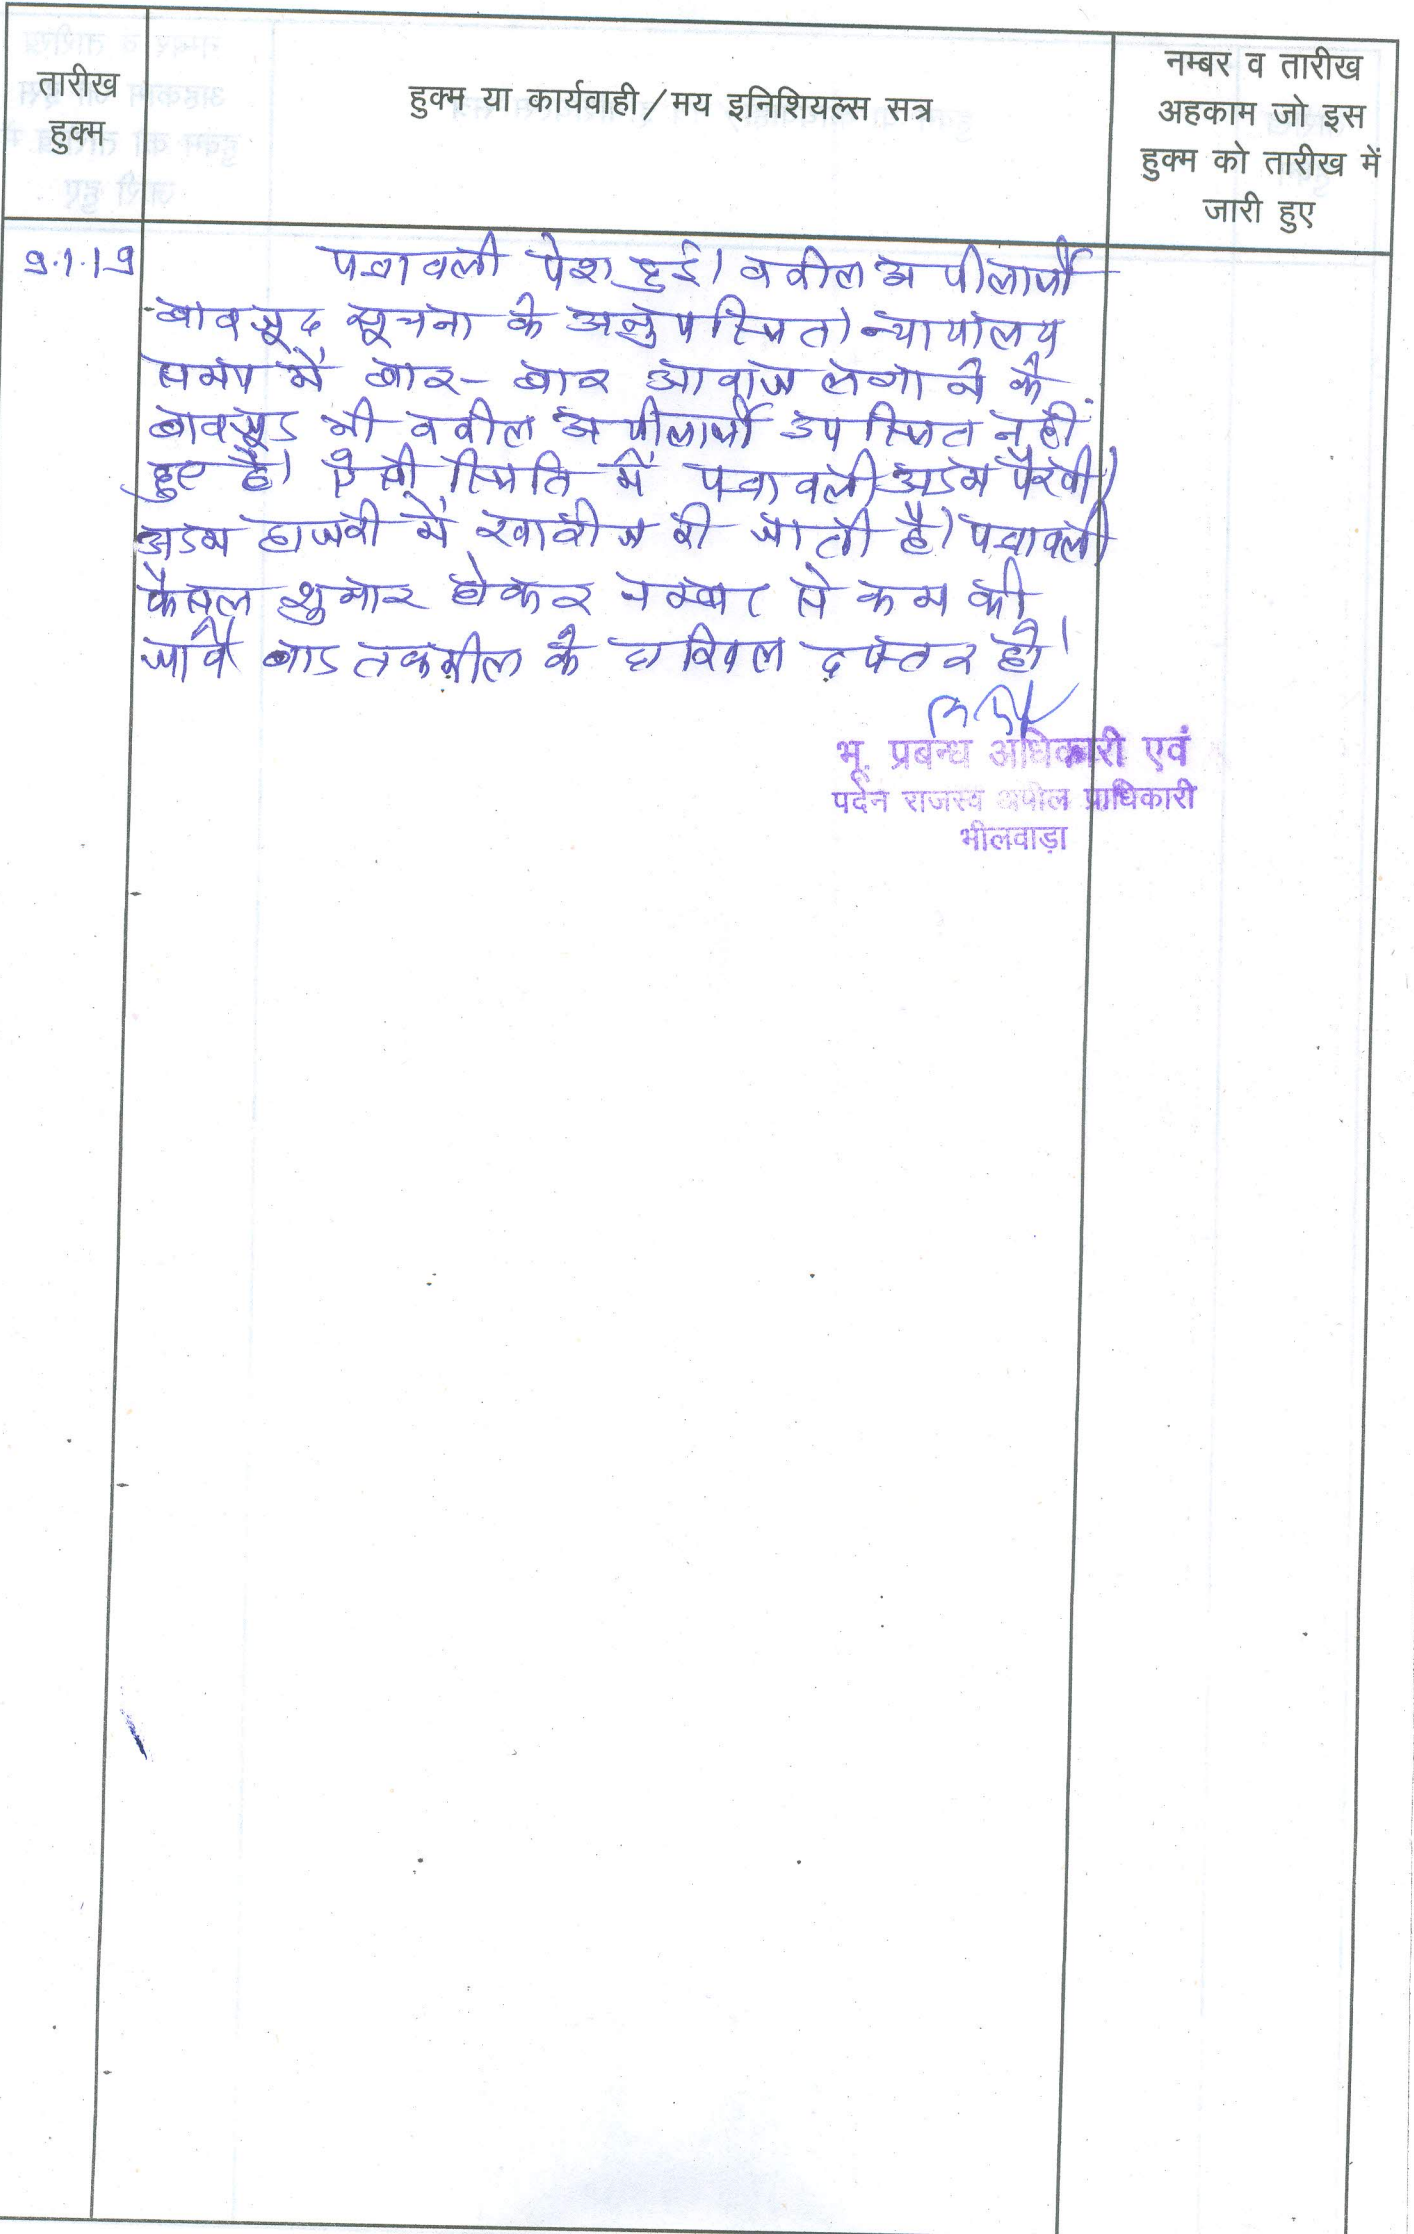 तारीख
हुक्म
हुक्म या कार्यवाही/मय इनिशियल्स सत्र
नम्बर व तारीख
अहकाम जो इस
हुक्म को तारीख में
जारी हुए
9.1.19
पत्रावली पेश हुई। वकील अपीलार्थी
बावजूद सूचना के अनुपस्थित। न्यायालय
समय में बार-बार आवाज लगाने के
बावजूद भी वकील अपीलार्थी उपस्थित नहीं
हुए है। ऐसी स्थिति में पत्रावली अदम पैरवी/
अदम हाजरी में खारीज की जाती है। पत्रावली
फैसल शुमार होकर नम्बर से कम की
जावे बाद तकमील के दाखिल दफ्तर हो।
भू. प्रबन्ध अधिकारी एवं
पदेन राजस्व अपील प्राधिकारी
भीलवाड़ा